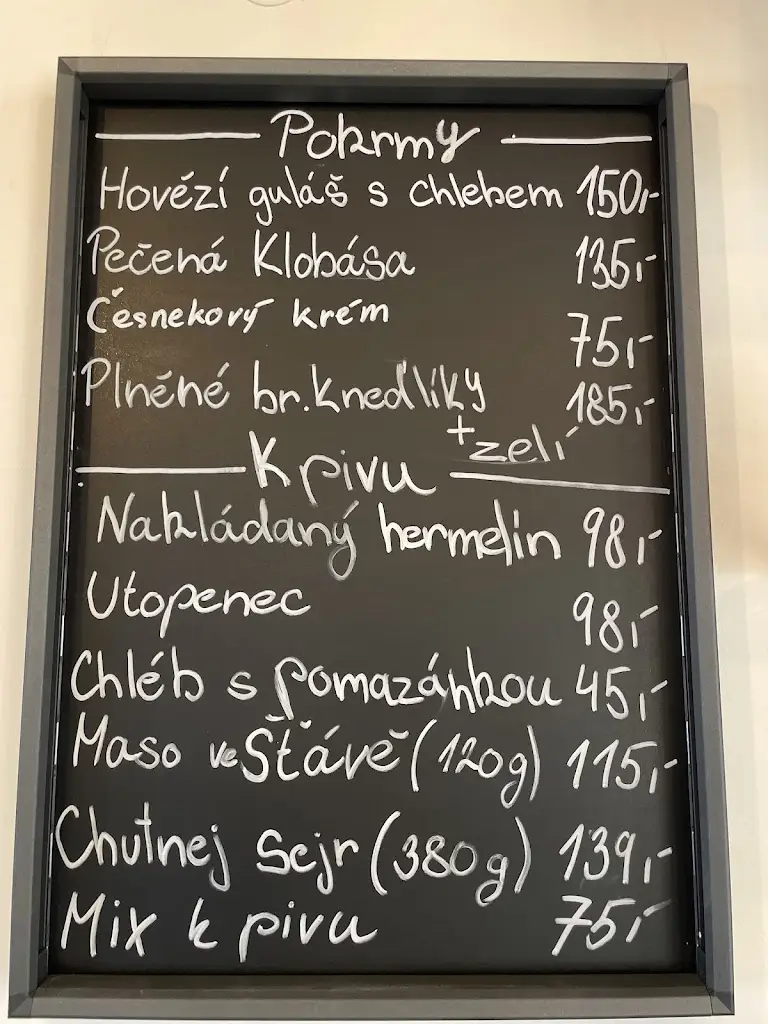 Pokrmy
Hovězí guláš s chlebem 150,-
Pečená Klobása 135,-
Česnekový krém 75,-
Plněné br. knedlíky 185,-
+ zelí
K pivu
Nakládaný hermelin 98,-
Utopenec 98,-
Chléb s pomazánkou 45,-
Maso ve Šťávě (120g) 115,-
Chutnej sejr (380g) 139,-
Mix k pivu 75,-